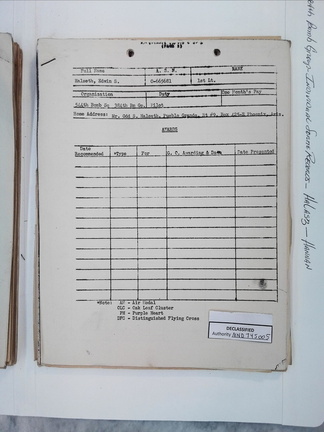 (PAGE 1)
Full Name A. S. N. RANK
Halseth, Edwin S. O-665681 1st Lt.
Organization Duty One Month's Pay
544th Bomb Sq 384th Bm Gp. Pilot
Home Address: Mr. Odd S. Halseth, Pueblo Grande, Rt #3, Box Phoenix, Ariz.
AWARDS
Date Recommended *Type For G. O. Awarding & Date Date Presented
*Note: AM - Air Medal
OLC - Oak Leaf Cluster
PH - Purple Heart
DFC - Distinguished Flying Cross
DECLASSIFIED
Authority NND 745005
Bomb Group - Individual Records - HALASZ - HANNAN